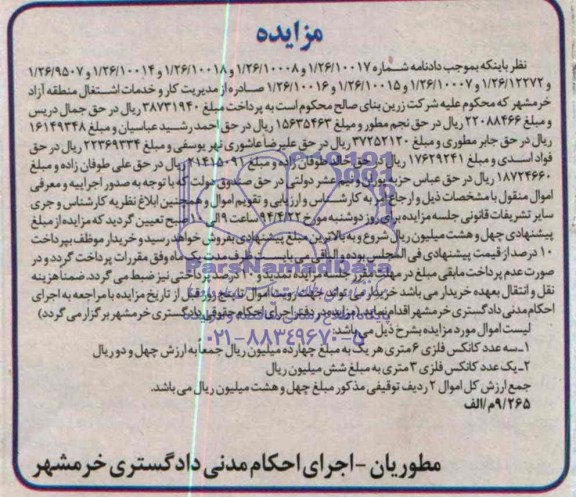 مزایده
نظر باینکه بموجب دادنامه شماره ۱/۲۶/۱۰۰۱۷ و ۱/۲۶/۱۰۰۰۸ و ۱/۲۶/۱۰۰۱۸ و ۱/۲۶/۱۰۰۱۴ و ۱/۲۶/۹۵۰۷
و ۱/۲۶/۱۲۲۷۲ و ۱/۲۶/۱۰۰۰۷ و ۱/۲۶/۱۰۰۱۵ و ۱/۲۶/۱۰۰۱۶ صادره از مدیریت کار و خدمات اشتغال منطقه آزاد
خرمشهر که محکوم علیه شرکت زرین بنای صالح محکوم است به پرداخت مبلغ ۳۸۷۳۱۹۴۰ ریال در حق جمال دریس
و مبلغ ۲۲۰۸۸۴۶۶ ریال در حق نجم مطور و مبلغ ۱۵۶۳۵۴۶۳ ریال در حق احمد رشید عباسیان و مبلغ ۱۶۱۴۹۳۴۸
ریال در حق جابر مطوری و مبلغ ۳۷۲۵۲۱۲۰ ریال در حق علیرضا عاشوری نهر یوسفی و مبلغ ۲۲۳۶۹۳۳۴ ریال در حق
فواد اسدی و مبلغ ۱۷۶۲۹۲۴۱ ریال در حق خالد طوفان زاده و مبلغ ۲۱۴۱۵۰۹۱ ریال در حق علی طوفان زاده و مبلغ
۱۸۷۲۴۶۶۰ ریال در حق عباس حزبه پور و نیم عشر دولتی در حق صندوق دولت که با توجه به صدور اجراییه و معرفی
اموال منقول با مشخصات ذیل و ارجاع امر به کارشناس و ارزیابی و تقویم اموال و همچنین ابلاغ نظریه کارشناس و جری
سایر تشریفات قانونی جلسه مزایده برای روز دوشنبه مورخ ۹۴/۴/۲۲ ساعت ۹ الی ۱۰ صبح تعیین گردید که مزایده از مبلغ
پیشنهادی چهل و هشت میلیون ریال شروع و به بالاترین مبلغ پیشنهادی بفروش خواهد رسید و خریدار موظف بپرداخت
۱۰ درصد از قیمت پیشنهادی فی المجلس بوده و الباقی می بایست ظرف مدت یک ماه وفق مقررات پرداخت گردد و در
صورت عدم پرداخت مابقی مبلغ در مهلت مقرر جلسه مزایده تمدید و ۱۰ درصد پرداختی نیز ضبط می گردد. ضمنا هزینه
نقل و انتقال بعهده خریدار می باشد خریدار می تواند جهت رویت اموال تا پنج روز قبل از تاریخ مزایده با مراجعه به اجرای
احکام مدنی دادگستری خرمشهر اقدام نماید. (مزایده در دفتر اجرای احکام حقوقی دادگستری خرمشهر برگزار می گردد)
لیست اموال مورد مزایده بشرح ذیل می باشد:
۱ـ سه عدد کانکس فلزی ۶ متری هر یک به مبلغ چهارده میلیون ریال جمعا به ارزش چهل و دو ریال
۲ـ یک عدد کانکس فلزی ۳ متری به مبلغ شش میلیون ریال
جمع ارزش کل اموال ۲ ردیف توقیفی مذکور مبلغ چهل و هشت میلیون ریال می باشد.
۹/۲۶۵/م/الف
مطوریان - اجرای احکام مدنی دادگستری خرمشهر
ParsNamadData
۰۲۱-۸۸۳۴۹۶۷۰-۵